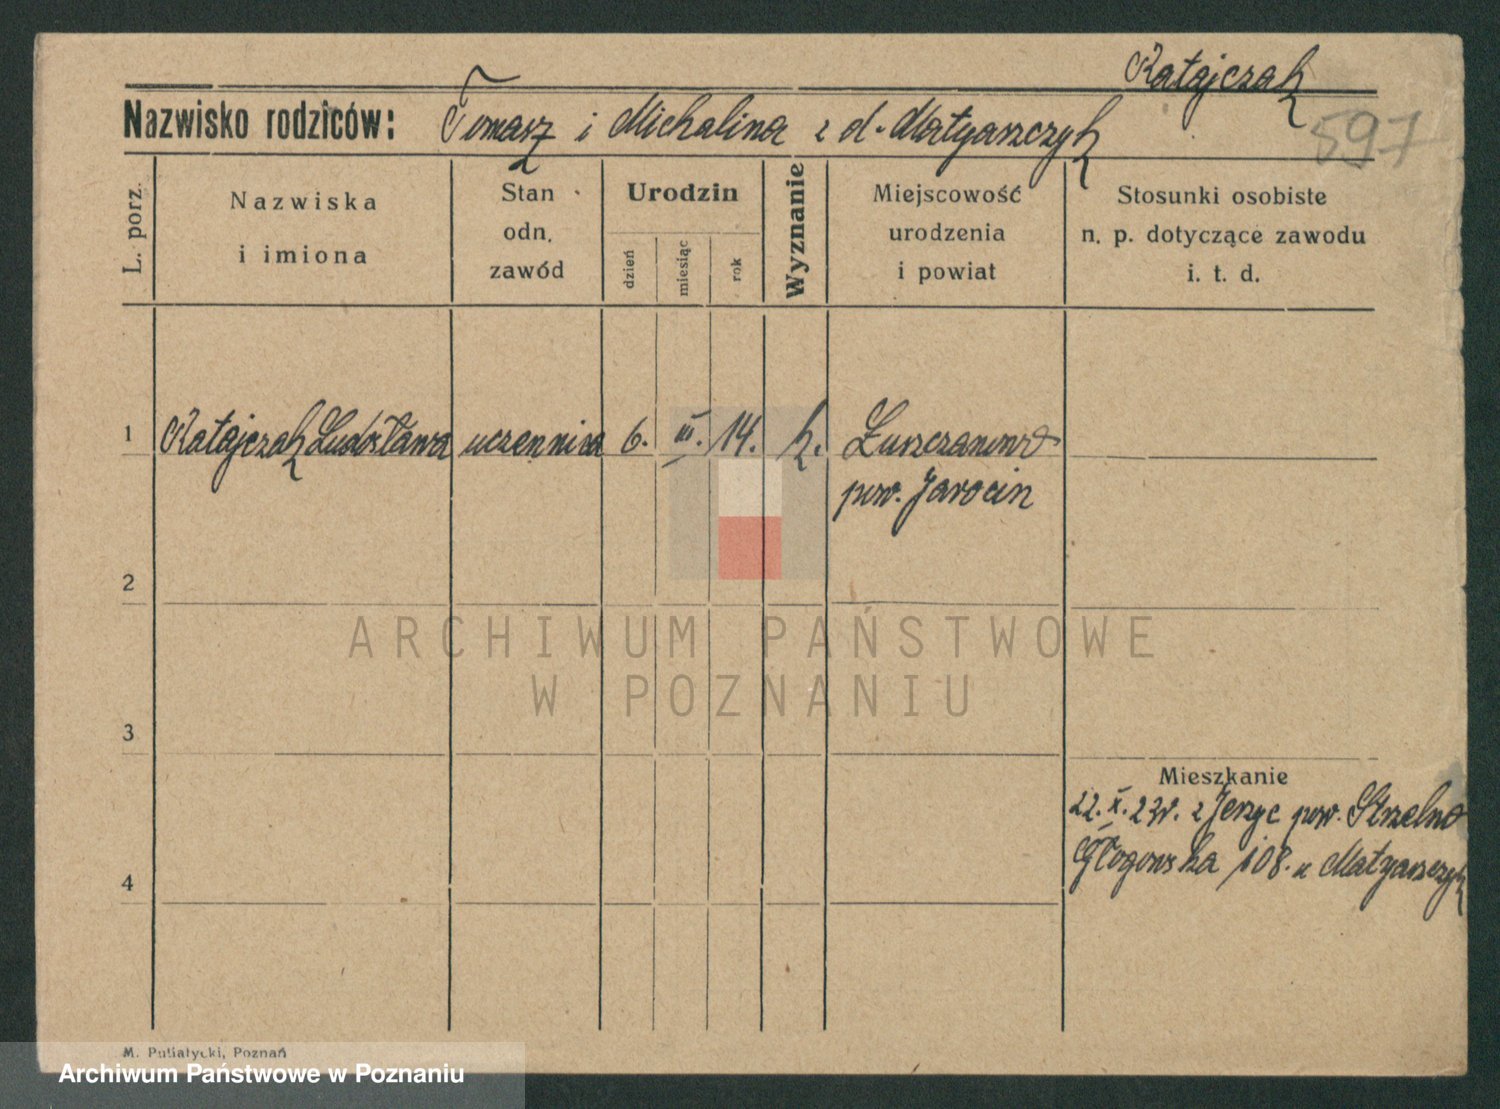 Ratajczak
Nazwisko rodziców: Tomasz i Michalina z d. Matyaszczyk
597
L. porz.
Nazwiska
i imiona
Stan
odn.
zawód
Urodzin
dzień
miesiąc
rok
Wyznanie
Miejscowość
urodzenia
i powiat
Stosunki osobiste
n. p. dotyczące zawodu
i. t. d.
1 Ratajczak Ludosława uczennica 6. III. 14. k. Łuszczanowo
pow. Jarocin
2
ARCHIWUM PAŃSTWOWE
W POZNANIU
3
Mieszkanie
22.X.23r. z Jerzyc pow. Strzelno
Głogowska 108. u Matyaszczyk
4
M. Putiatycki, Poznań
Archiwum Państwowe w Poznaniu